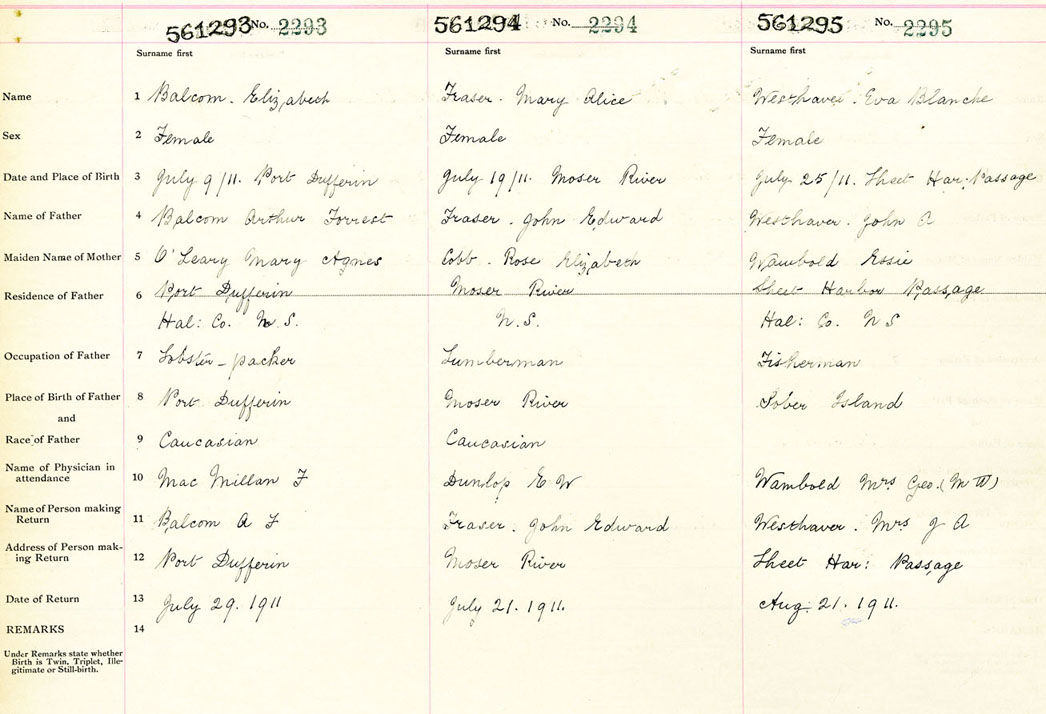 561293 No. 2293 561294 No. 2294 561295 No. 2295
Surname first Surname first Surname first
Name 1 Balcom. Elizabeth Fraser. Mary Alice Westhaver. Eva Blanche
Sex 2 Female Female Female
Date and Place of Birth 3 July 9/11. Port Dufferin July 19/11 Moser River July 25/11. Sheet Har: Passage
Name of Father 4 Balcom Arthur Forrest Fraser. John Edward Westhaver. John A
Maiden Name of Mother 5 O'Leary Mary Agnes Cobb. Rose Elizabeth Wambold Essie
Residence of Father 6 Port Dufferin Moser River Sheet Harbor Passage
Hal: Co. N.S. N.S. Hal: Co. N S
Occupation of Father 7 Lobster-packer Lumberman Fisherman
Place of Birth of Father 8 Port Dufferin Moser River Sober Island
and
Race of Father 9 Caucasian Caucasian
Name of Physician in
attendance 10 Mac Millan F Dunlop E W Wambold Mrs Geo. (M W)
Name of Person making
Return 11 Balcom A F Fraser. John Edward Westhaver. Mrs J A
Address of Person mak-
ing Return 12 Port Dufferin Moser River Sheet Har: Passage
Date of Return 13 July 29. 1911 July 21. 1911. Aug. 21. 1911.
REMARKS 14
Under Remarks state whether
Birth is Twin, Triplet, Ille-
gitimate or Still-birth.